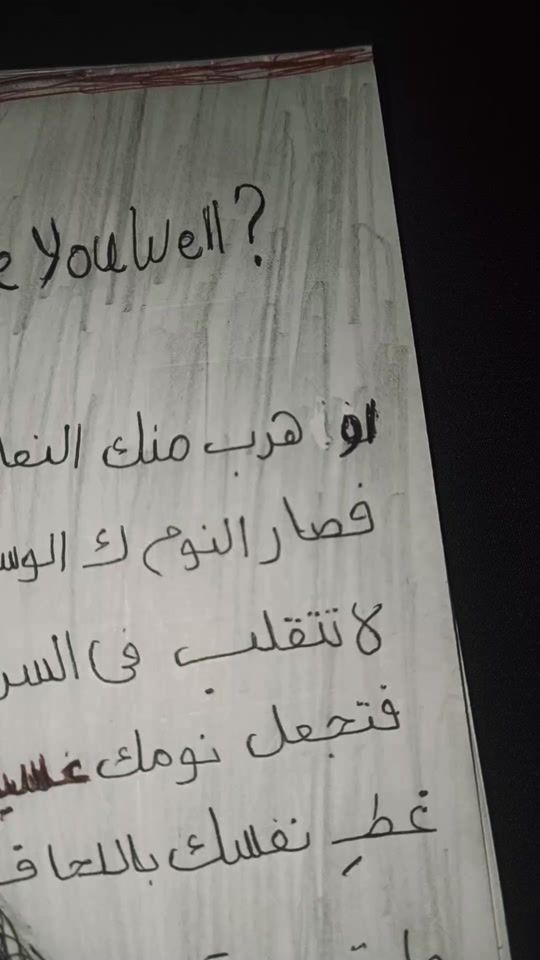 e You Well?
لو هرب منك النعا
فصار النوم ك الوس
لا تتقلب فى السر
فتجعل نومك عسي
غطِ نفسك باللحاف